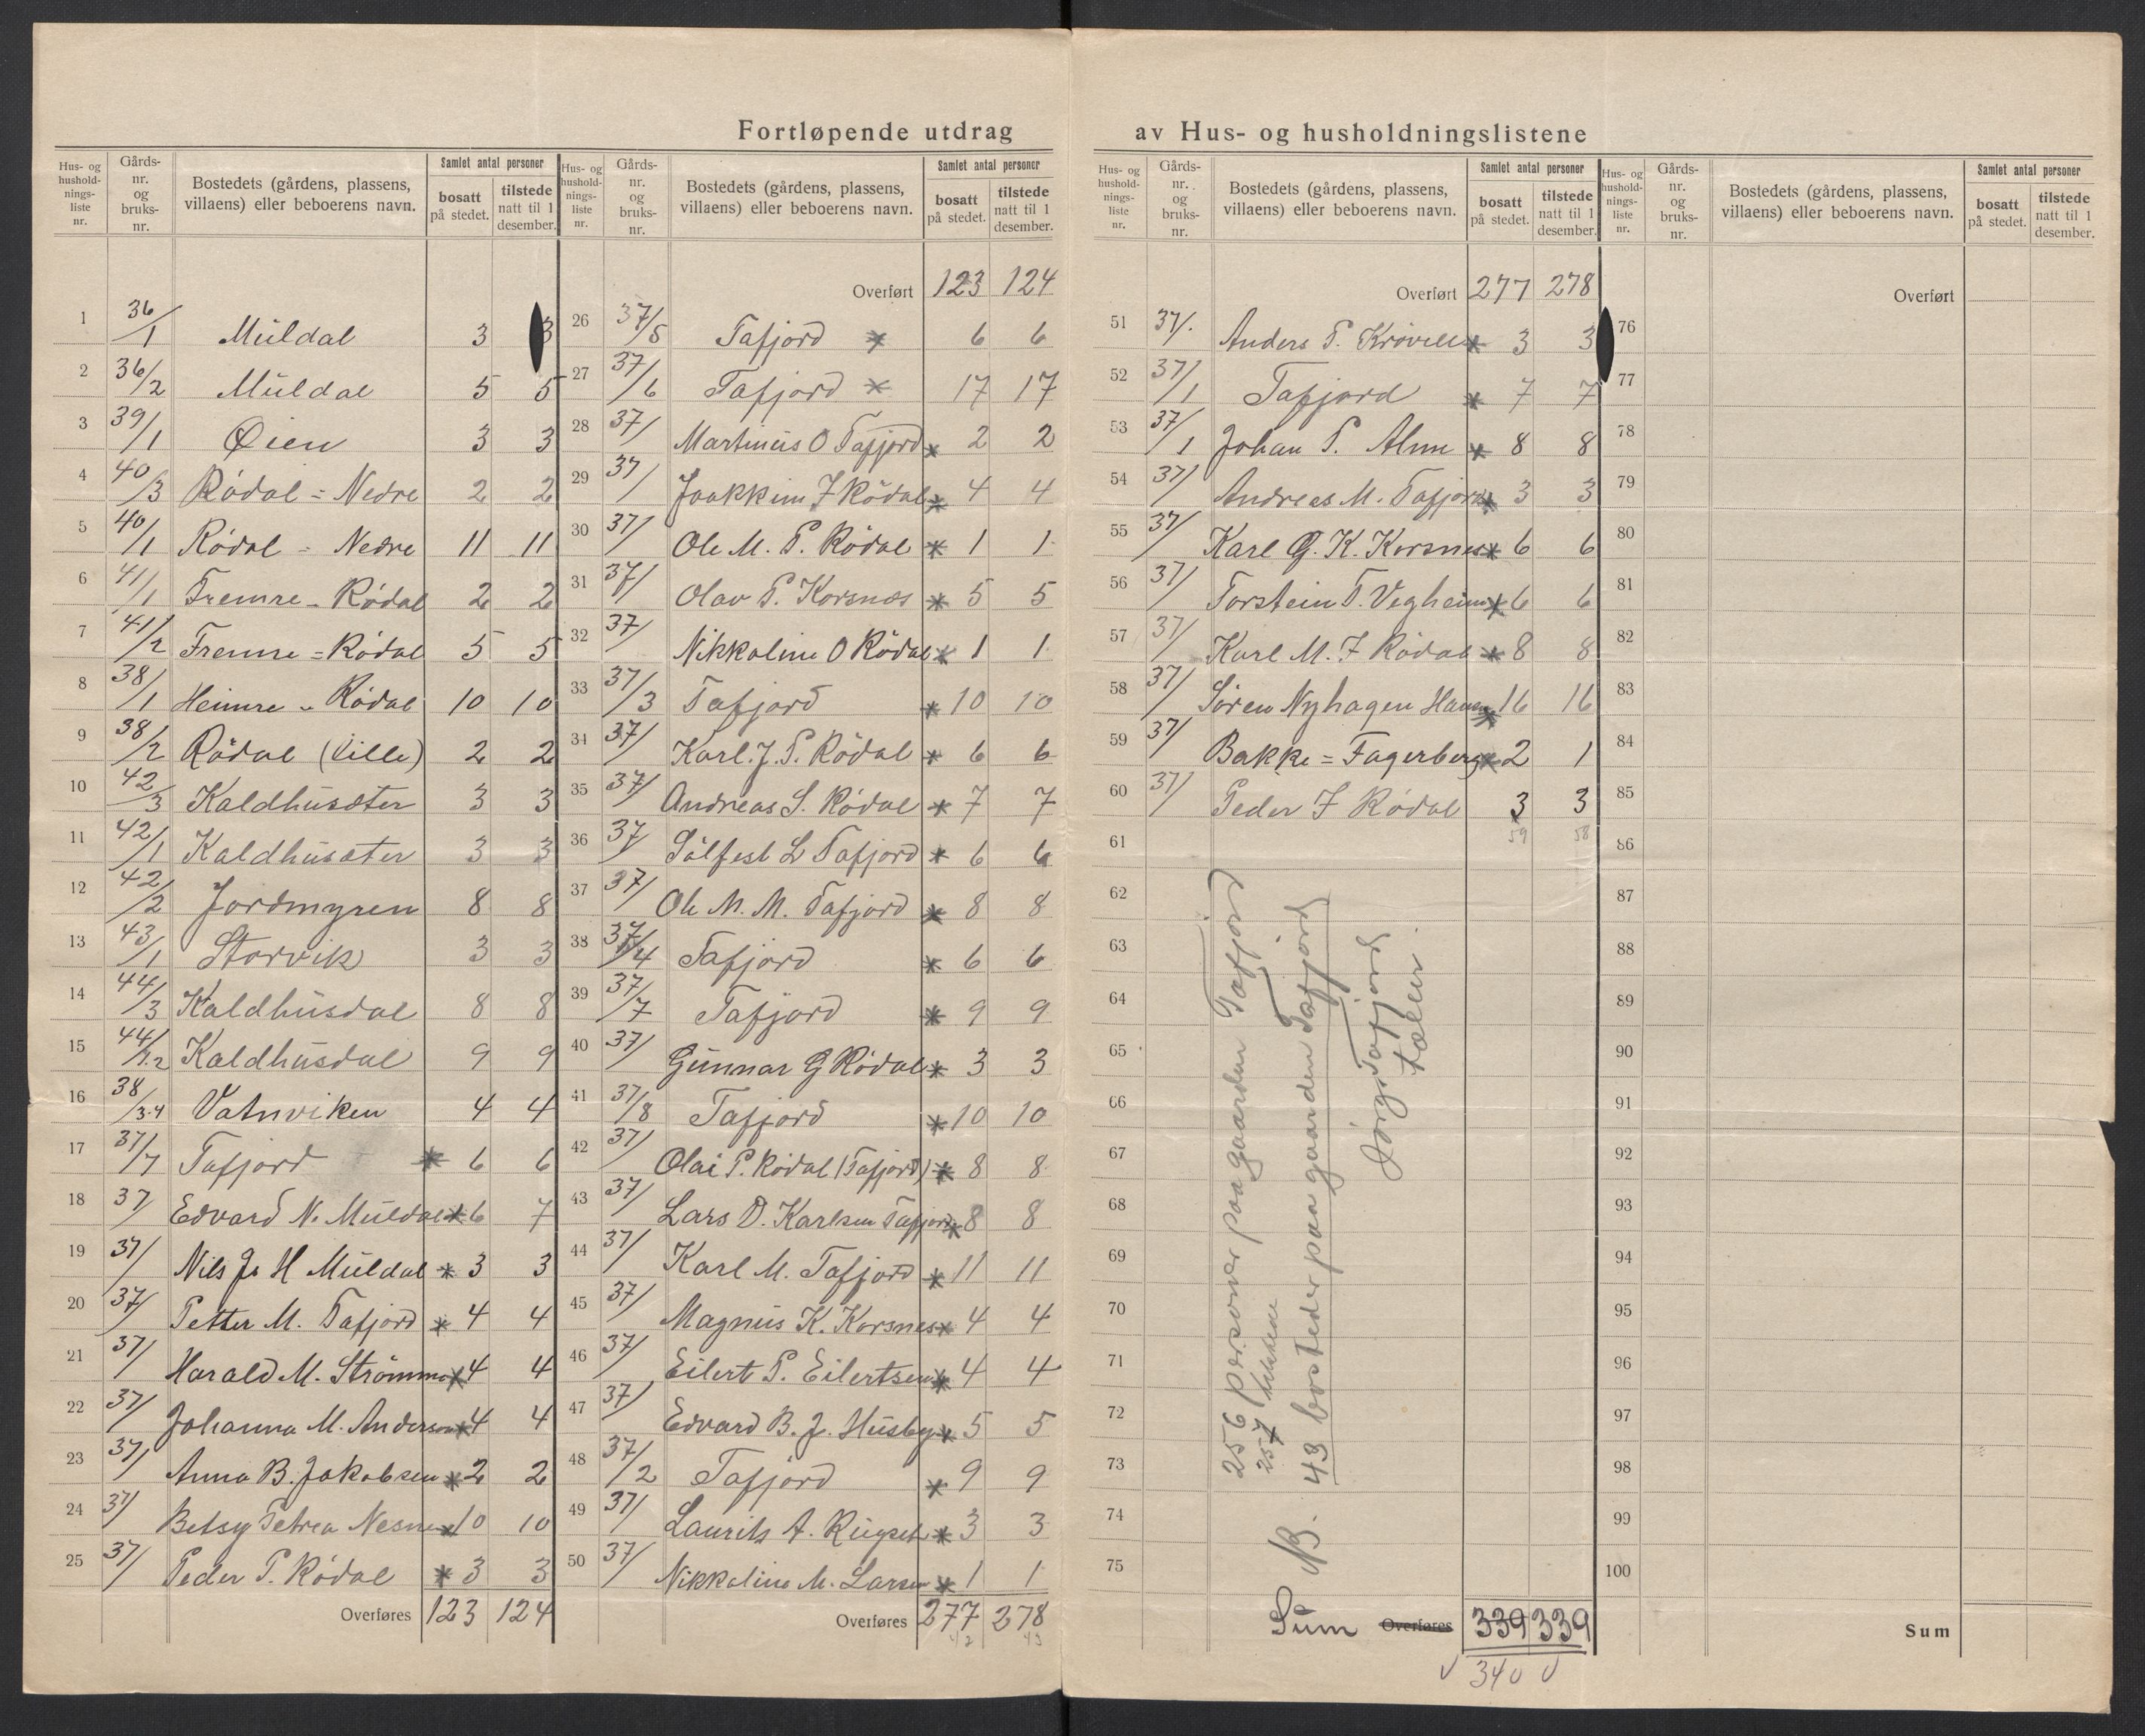 Fortløpende utdrag av Hus- og husholdningslistene
Hus- og husholdningsliste nr. | Gårds-nr. og bruks-nr. | Bostedets (gårdens, plassens, villaens) eller beboerens navn. | Samlet antal personer | bosatt på stedet. | tilstede natt til 1 desember.
1 36/1 Muldal 3 3
2 36/2 Muldal 5 5
3 39/1 Øien 3 3
4 40/3 Rödal = Nedre 2 2
5 40/1 Rödal = Nedre 11 11
6 41/1 Fremre - Rödal 2 2
7 41/2 Fremre = Rödal 5 5
8 38/1 Heimre - Rödal 10 10
9 38/2 Rödal (Lille) 2 2
10 42/3 Kaldhusæter 3 3
11 42/1 Kaldhusæter 3 3
12 42/2 Jordmyren 8 8
13 43/1 Storvik 3 3
14 44/3 Kaldhusdal 8 8
15 44/1.2 Kaldhusdal 9 9
16 38/3.4 Vatnviken 4 4
17 37/7 Tafjord * 6 6
18 37/ Edvard N. Muldal * 6 7
19 37/ Nils J. H Muldal * 3 3
20 37/ Petter M. Tafjord * 4 4
21 37/ Harald M. Strömme * 4 4
22 37/ Johanna M. Andersen * 4 4
23 37/ Anna B. Jakobsen * 2 2
24 37/ Betsy Petrea * 10 10
25 37/ Peder P. Rödal * 3 3
Overføres 123 124
Hus- og husholdningsliste nr. | Gårds-nr. og bruks-nr. | Bostedets (gårdens, plassens, villaens) eller beboerens navn. | Samlet antal personer | bosatt på stedet. | tilstede natt til 1 desember.
Overført 123 124
26 37/5 Tafjord * 6 6
27 37/6 Tafjord * 17 17
28 37/ Martinus O Tafjord * 2 2
29 37/ Joakkim J Rödal * 4 4
30 37/ Ole M. P. Rödal * 1 1
31 37/ Olav P. Korsnæs * 5 5
32 37/ Nikkoline O Rödal * 1 1
33 37/3 Tafjord * 10 10
34 37/ Karl. J. P. Rödal * 6 6
35 37/ Andreas S. Rödal * 7 7
36 37/ Sölfest L Tafjord * 6 6
37 37/ Ole M. M. Tafjord * 8 8
38 37/4 Tafjord * 6 6
39 37/7 Tafjord * 9 9
40 37/ Gunnar G Rödal * 3 3
41 37/8 Tafjord * 10 10
42 37/ Olai P. Rödal (Tafjord) * 8 8
43 37/ Lars O. Karlsen Tafjord * 8 8
44 37/ Karl M. Tafjord * 11 11
45 37/ Magnus K. Korsnes * 4 4
46 37/ Eilert P. Eilertsen * 4 4
47 37/ Edvard B. J. Husby * 5 5
48 37/2 Tafjord * 9 9
49 37/ Laurits A. * 3 3
50 37/ Nikkoline M. Larsen * 1 1
Overføres 277 278
42 43
Hus- og husholdningsliste nr. | Gårds-nr. og bruks-nr. | Bostedets (gårdens, plassens, villaens) eller beboerens navn. | Samlet antal personer | bosatt på stedet. | tilstede natt til 1 desember.
Overført 277 278
51 37/. Anders P. * 3 3
52 37/1 Tafjord * 7 7
53 37/1 Johan P. Alme * 8 8
54 37/ Andreas M. Tafjord * 3 3
55 37/ Karl G. K. Korsnes * 6 6
56 37/ Torstein T. Vegheim * 6 6
57 37/ Karl M. J Rödal * 8 8
58 37/ Sören Nyhagen * 16 16
59 37/ Bakke = Fagerberg * 2 1
60 37/ Peder J Rödal 3 3
61 59 58
62
63
64
65
66
67
68
69
70
71
72
73
74
75
NB. 256 personer paa gaarden Tafjord
257
43 bosteder paa gaarden Tafjord
Jörgs Tafjord
tæller.
Sum Overføres 339 339
340
Hus- og husholdningsliste nr. | Gårds-nr. og bruks-nr. | Bostedets (gårdens, plassens, villaens) eller beboerens navn. | Samlet antal personer | bosatt på stedet. | tilstede natt til 1 desember.
Overført
76
77
78
79
80
81
82
83
84
85
86
87
88
89
90
91
92
93
94
95
96
97
98
99
100
Sum